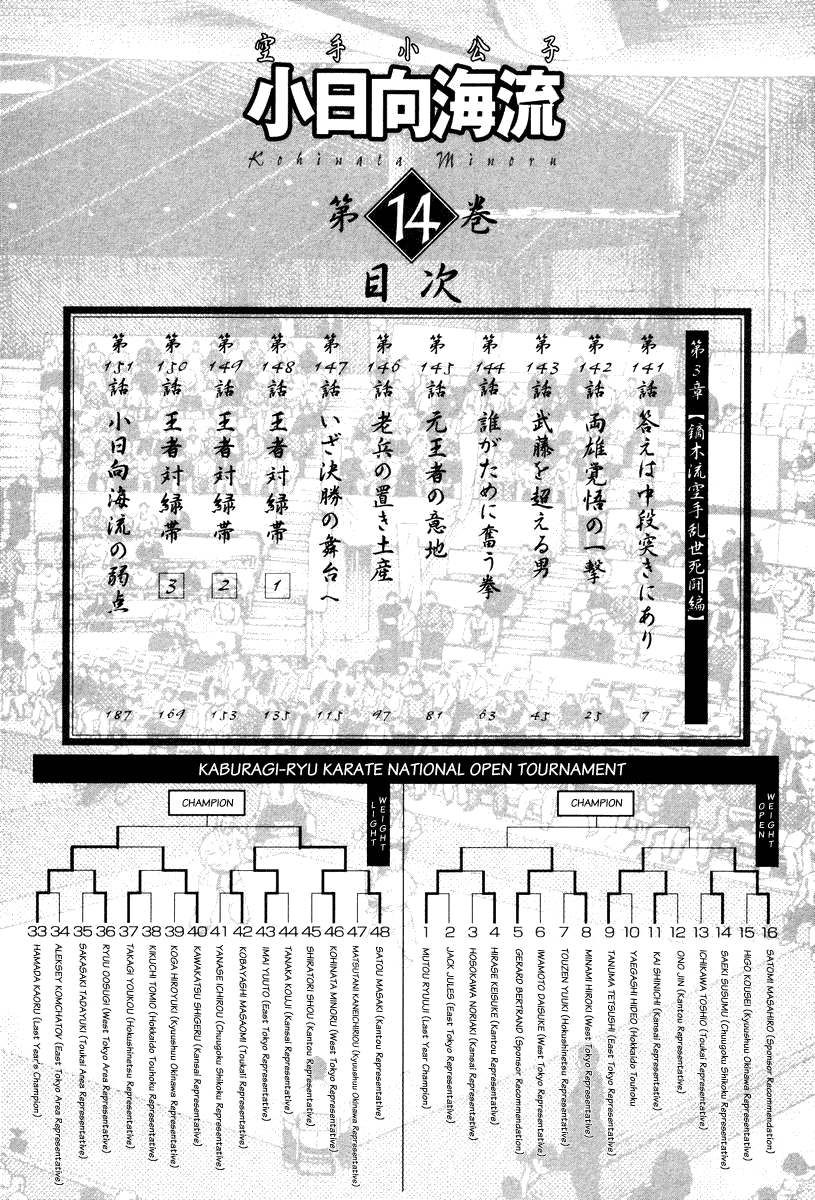 空手小公子
小日向海流
Kohinata Minoru
第14巻
目次
第3章【鏑木流空手乱世死闘編】
第141話 答えは中段突きにあり 7
第142話 両雄覚悟の一撃 25
第143話 武藤を超える男 45
第144話 誰がために奮う拳 63
第145話 元王者の意地 81
第146話 老兵の置き土産 97
第147話 いざ決勝の舞台へ 115
第148話 王者対緑帯 1 135
第149話 王者対緑帯 2 153
第150話 王者対緑帯 3 169
第151話 小日向海流の弱点 187
KABURAGI-RYU KARATE NATIONAL OPEN TOURNAMENT
LIGHT WEIGHT
CHAMPION
33 HAMADA KAORU (Last Year's Champion)
34 ALEKSEY KONCHATOV (East Tokyo Area Representative)
35 SAKASAKI TADAYUKI (Toukai Area Representative)
36 RYUU OOSUGI (West Tokyo Area Representative)
37 TAKAGI YOUKOU (Hokushinetsu Representative)
38 KIKUCHI TOMIO (Hokkaido Touhoku Representative)
39 KOGA HIROYUKI (Kyuushuu Okinawa Representative)
40 KAWAKATSU SHIGERU (Kansai Representative)
41 YANASE ICHIROU (Chuugoku Shikoku Representative)
42 KOBAYASHI MASAOMI (Toukai Representative)
43 IMAI YUUTO (East Tokyo Representative)
44 TANAKA KOUJI (Kansai Representative)
45 SHIRATORI SHOU (Kantou Representative)
46 KOHINATA MINORU (West Tokyo Representative)
47 MATSUTANI KANEICHIRIOU (Kyuushuu Okinawa Representative)
48 SATOU MASAKI (Kantou Representative)
OPEN WEIGHT
CHAMPION
1 MUTOU RYUUJI (Last Year Champion)
2 JACK JULES (East Tokyo Representative)
3 HOSOKAWA NORIAKI (Kansai Representative)
4 HIRASE KEISUKE (Kantou Representative)
5 GERARD BERTRAND (Sponsor Recommendation)
6 IWAMOTO DAISUKE (West Tokyo Representative)
7 TOUZEN YUUKI (Hokushinetsu Representative)
8 MINAMI HIROKI (West Tokyo Representative)
9 TANUMA TETSUSHI (East Tokyo Representative)
10 YAEGASHI HIDEO (Hokkaido Touhoku
11 KAI SHINICHI (Kansai Representative)
12 ONO JIN (Kantou Representative)
13 ICHIKAWA TOSHIO (Toukai Representative)
14 SAEKI SUSUMU (Chuugoku Shikoku Representative)
15 HIGO KOUSEI (Kyuushuu Okinawa Representative)
16 SATOMI MASAHIRO (Sponsor Recommendation)